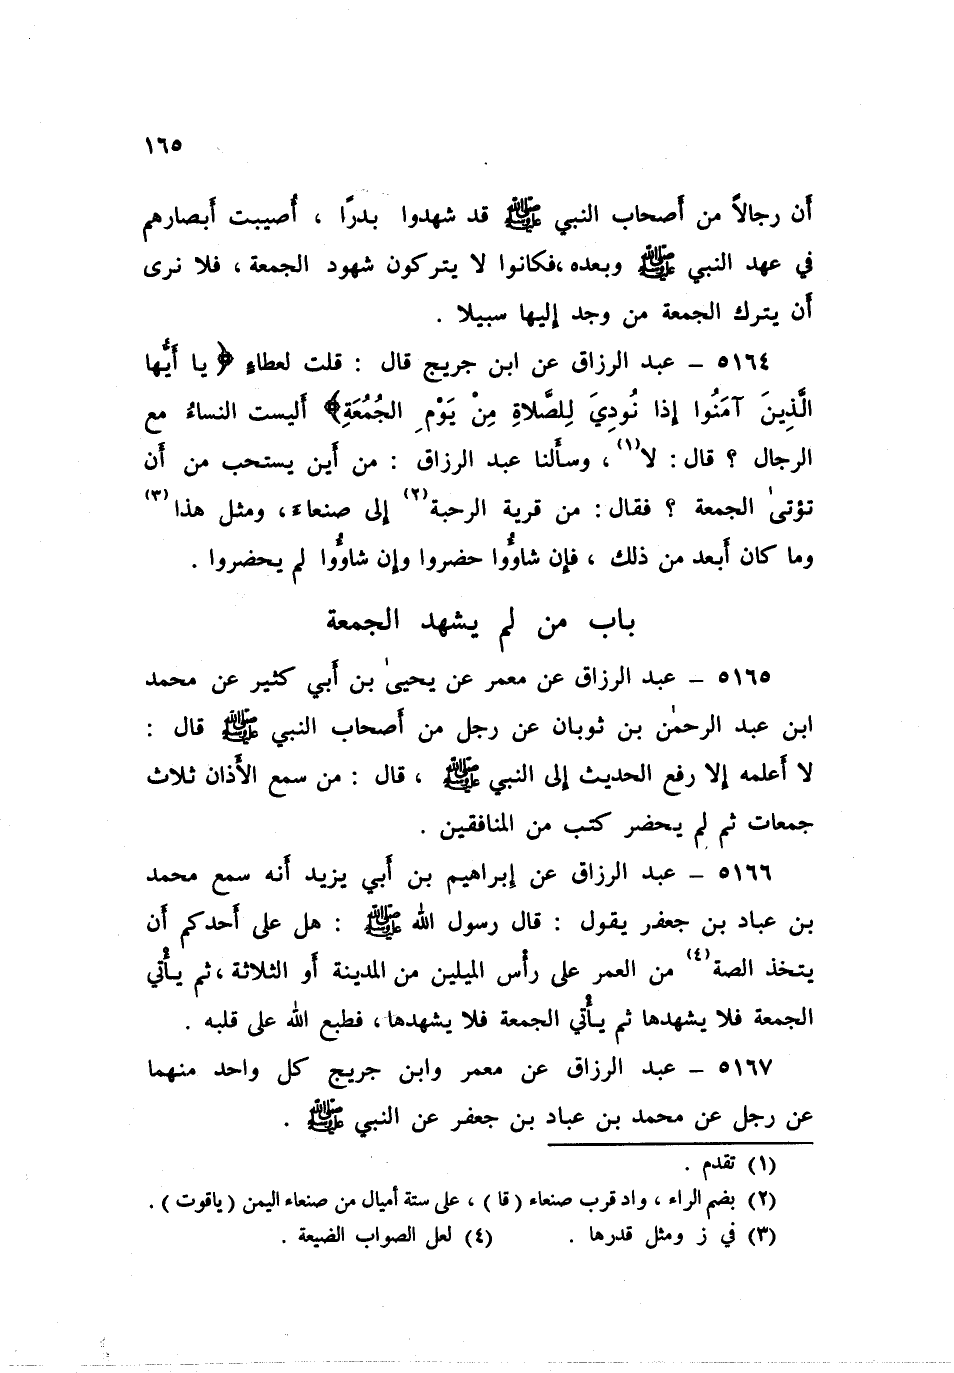 ١٦٥
أن رجالاً من أصحاب النبي ﷺ قد شهدوا بدرًا ، أصيبت أبصارهم
في عهد النبي ﷺ وبعده ،فكانوا لا يتركون شهود الجمعة ، فلا نرى
أن يترك الجمعة من وجد إليها سبيلا .
٥١٦٤ – عبد الرزاق عن ابن جريج قال : قلت لعطاءٍ ﴿ يا أَيُّها
الَّذِينَ آمَنُوا إذا نُودِيَ لِلصَّلاةِ مِنْ يَوْمِ الجُمُعَةِ﴾ أليست النساءُ مع
الرجال ؟ قال : لا(١) ، وسألنا عبد الرزاق : من أين يستحب من أن
تؤتىٰ الجمعة ؟ فقال : من قرية الرحبة(٢) إلى صنعاءَ ، ومثل هذا(٣)
وما كان أبعد من ذلك ، فإن شاؤُوا حضروا وإن شاؤُوا لم يحضروا .
باب من لم يشهد الجمعة
٥١٦٥ – عبد الرزاق عن معمر عن يحيىٰ بن أبي كثير عن محمد
ابن عبد الرحمٰن بن ثوبان عن رجل من أصحاب النبي ﷺ قال :
لا أعلمه إلا رفع الحديث إلى النبي ﷺ ، قال : من سمع الأذان ثلاث
جمعات ثم لم يحضر كتب من المنافقين .
٥١٦٦ – عبد الرزاق عن إبراهيم بن أبي يزيد أنه سمع محمد
بن عباد بن جعفر يقول : قال رسول الله ﷺ : هل على أحدكم أن
يتخذ الصة(٤) من العمر على رأس الميلين من المدينة أو الثلاثة ، ثم يأْتي
الجمعة فلا يشهدها ثم يأْتي الجمعة فلا يشهدها ، فطبع الله على قلبه .
٥١٦٧ – عبد الرزاق عن معمر وابن جريج كل واحد منهما
عن رجل عن محمد بن عباد بن جعفر عن النبي ﷺ .
(١) تقدم .
(٢) بضم الراء ، واد قرب صنعاء ( قا ) ، على ستة أميال من صنعاء اليمن ( ياقوت ) .
(٣) في ز ومثل قدرها . (٤) لعل الصواب الضيعة .